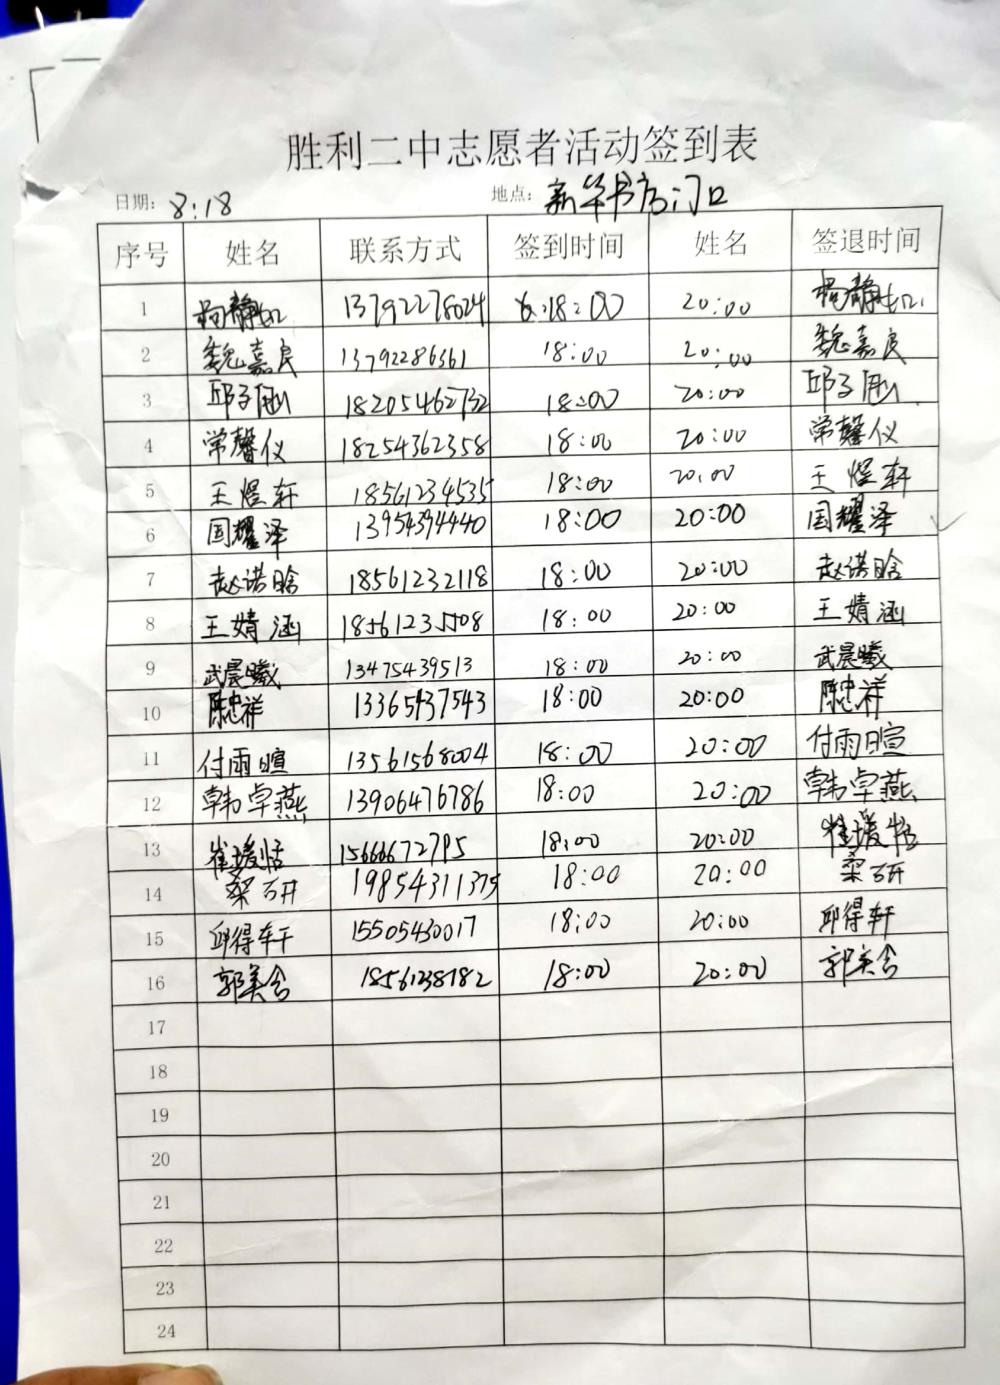 胜利二中志愿者活动签到表
日期: 8:18 地点: 新华书店门口
序号 姓名 联系方式 签到时间 姓名 签退时间
1 杨静如 13792278024 18:00 20:00 杨静如
2 魏嘉良 13792286361 18:00 20:00 魏嘉良
3 邱子涵 18205462732 18:00 20:00 邱子涵
4 常馨仪 18254362358 18:00 20:00 常馨仪
5 王煜轩 18561234535 18:00 20:00 王煜轩
6 国耀泽 13954394440 18:00 20:00 国耀泽
7 赵诺晗 18561232118 18:00 20:00 赵诺晗
8 王婧涵 18561235508 18:00 20:00 王婧涵
9 武晨曦 13475439513 18:00 20:00 武晨曦
10 陈忠祥 13365437543 18:00 20:00 陈忠祥
11 付雨暄 13561568004 18:00 20:00 付雨暄
12 韩卓燕 13906476786 18:00 20:00 韩卓燕
13 崔瑗恬 15666672795 18:00 20:00 崔瑗恬
14 桑研 19854311375 18:00 20:00 桑研
15 邱得轩 15505430017 18:00 20:00 邱得轩
16 郭美含 18561238782 18:00 20:00 郭美含
17
18
19
20
21
22
23
24